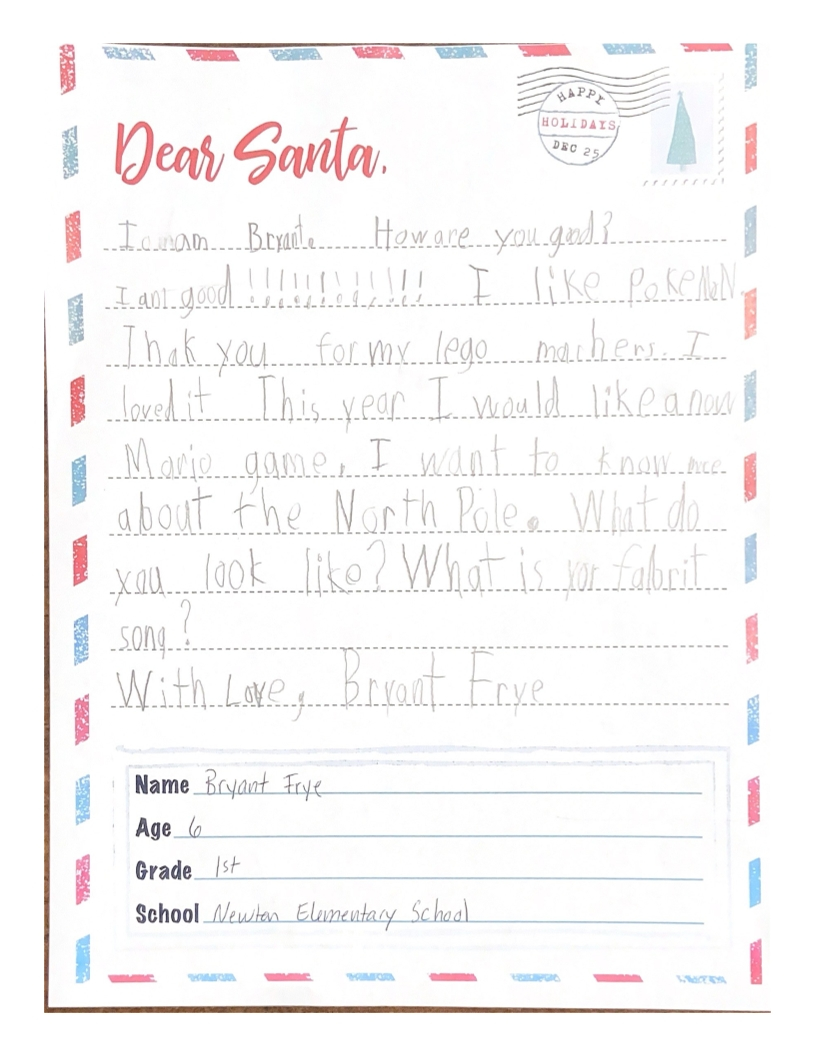 HAPPY
HOLIDAYS
DEC 25
Dear Santa,
I am Bryant. How are you good?
I am good !!!!!!!!!!!! I like PoKeMoN.
Thak you for my lego machers. I
loved it This year I would like a now
Mario game. I want to know
about the North Pole. What do
you look like? What is yor fabrit
song?
With Love, Bryant Frye
Name Bryant Frye
Age 6
Grade 1st
School Newton Elementary School